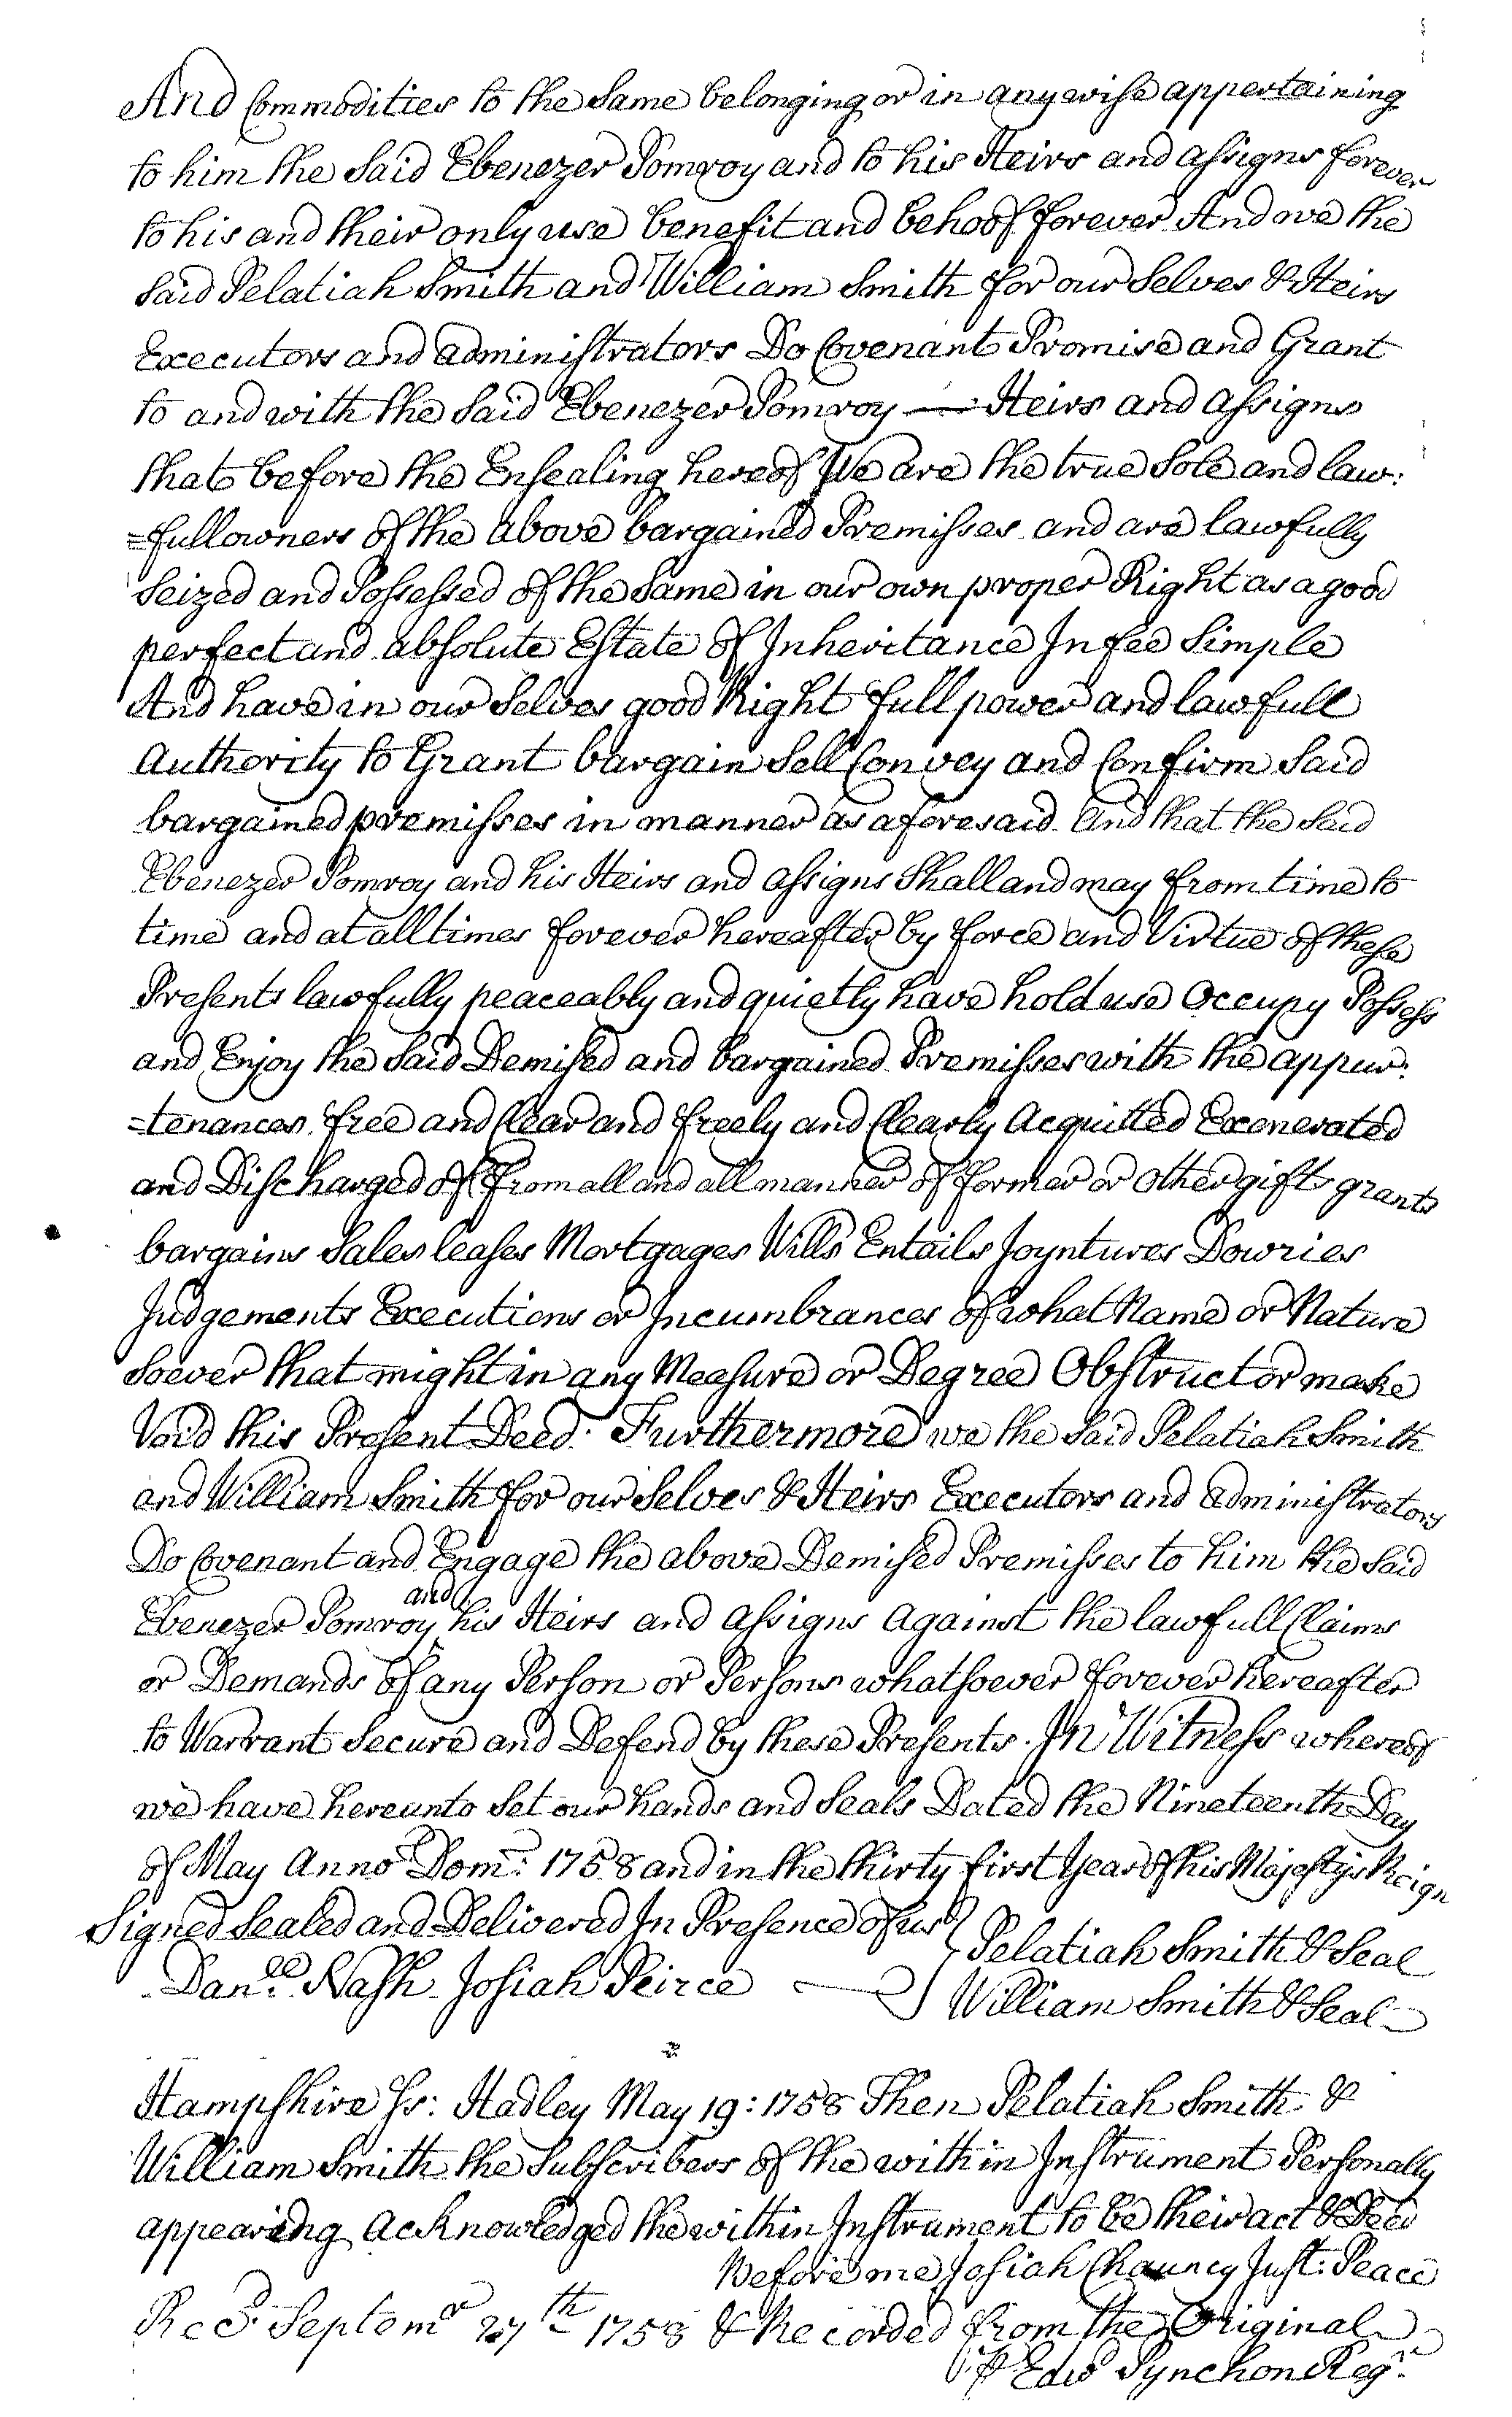 And Commodities to the Same belonging or in any wise appertaining
to him the Said Ebenezer Pomroy and to his Heirs and assigns forever
to his and their only use benefit and behoof forever And we the
Said Pelatiah Smith and William Smith for our Selves & Heirs
Executors and administrators Do Covenant Promise and Grant
to and with the Said Ebenezer Pomroy — Heirs and assigns
that before the Ensealing hereof We are the true Sole and law:
=full owners of the above bargained Premisses and are lawfully
Seized and Possessed of the Same in our own proper Right as a good
perfect and absolute Estate of Inheritance In fee Simple
And have in our Selves good Right full power and lawfull
Authority to Grant bargain Sell Convey and Confirm Said
bargained premisses in manner as aforesaid. And that the Said
Ebenezer Pomroy and his Heirs and assigns Shall and may from time to
time and at all times forever hereafter by force and Virtue of these
Presents lawfully peaceably and quietly have hold use Occupy Possess
and Enjoy the Said Demised and bargained Premisses with the appur:
=tenances free and Clear and freely and Clearly Acquitted Exonerated
and Discharged of from all and all manner of former or other gifts grants
bargains Sales leases Mortgages Wills Entails Joyntures Dowries
Judgements Executions or Incumbrances of what Name or Nature
Soever that might in any Measure or Degree Obstruct or make
Void this Present Deed. Furthermore we the Said Pelatiah Smith
and William Smith for our Selves & Heirs Executors and administrators
Do Covenant and Engage the above Demised Premisses to him the Said
Ebenezer Pomroy and his Heirs and assigns against the lawfull Claims
or Demands of any Person or Persons whatsoever forever hereafter
to Warrant Secure and Defend by these Presents. In Witness whereof
we have hereunto Set our hands and Seals Dated the Nineteenth Day
of May Anno Dom: 1758 and in the thirty first Year of his Majesty's Reign
Signed Sealed and Delivered In Presence of us
Pelatiah Smith & Seal
Danll. Nash. Josiah Peirce
William Smith & Seal
Hampshire Ss: Hadley May 19: 1758 Then Pelatiah Smith &
William Smith the Subscribers of the within Instrument Personally
appearing acknowledged the within Instrument to be their act & Deed
Before me Josiah Chauncy Just: Peace
Recd. Septemr 27th 1758 & Recorded from the Original
℔ Edwd Pynchon Regr.